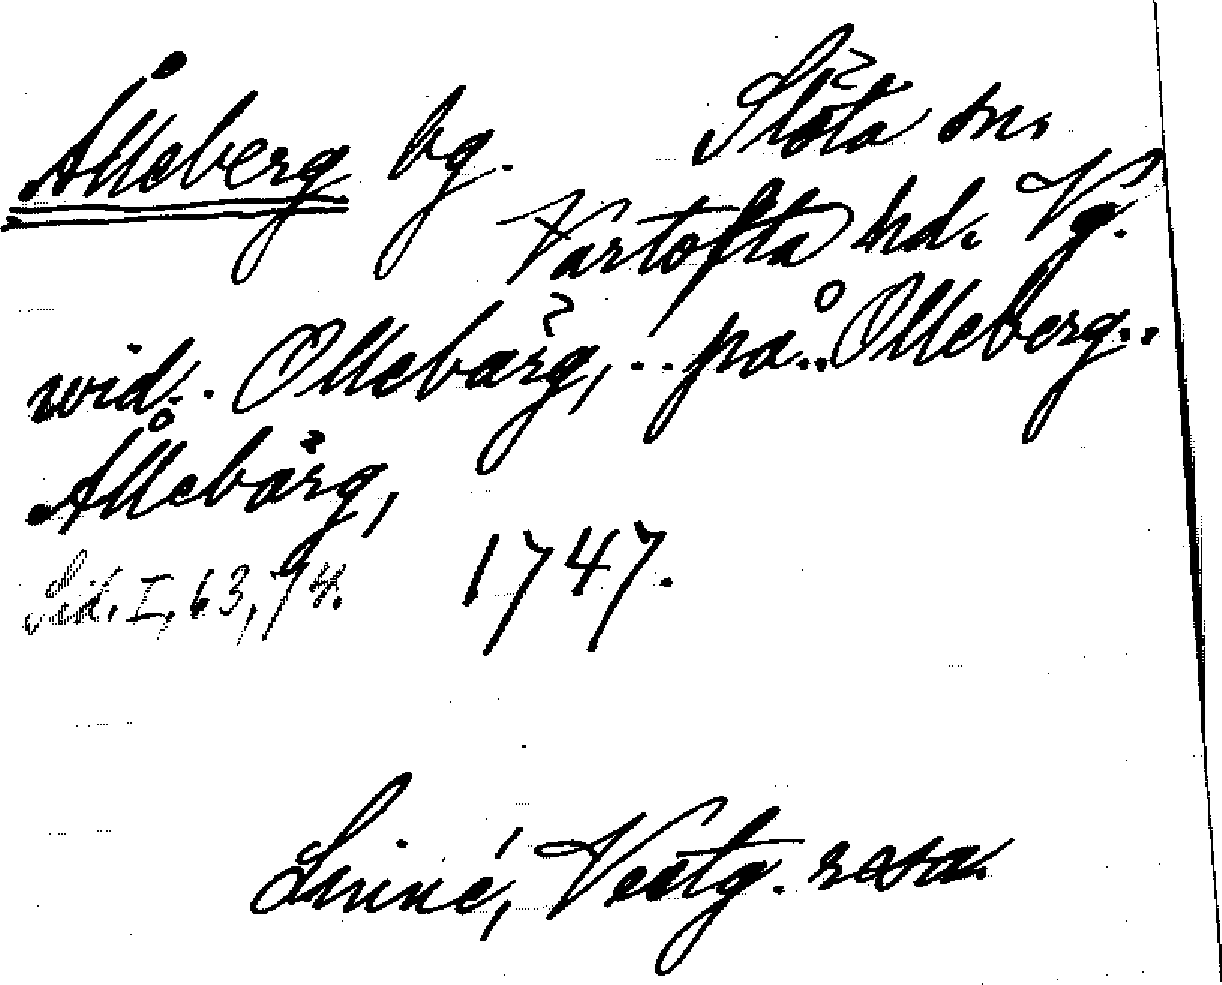 Ålleberg bg. Slöta sn.
Vartofta hd. Vg.
wid.. Ollebärg, .. på.. Ålleberg..
Ållebärg,
Sid. I, 63, 94. 1747.
Linné, Vestg. resa.